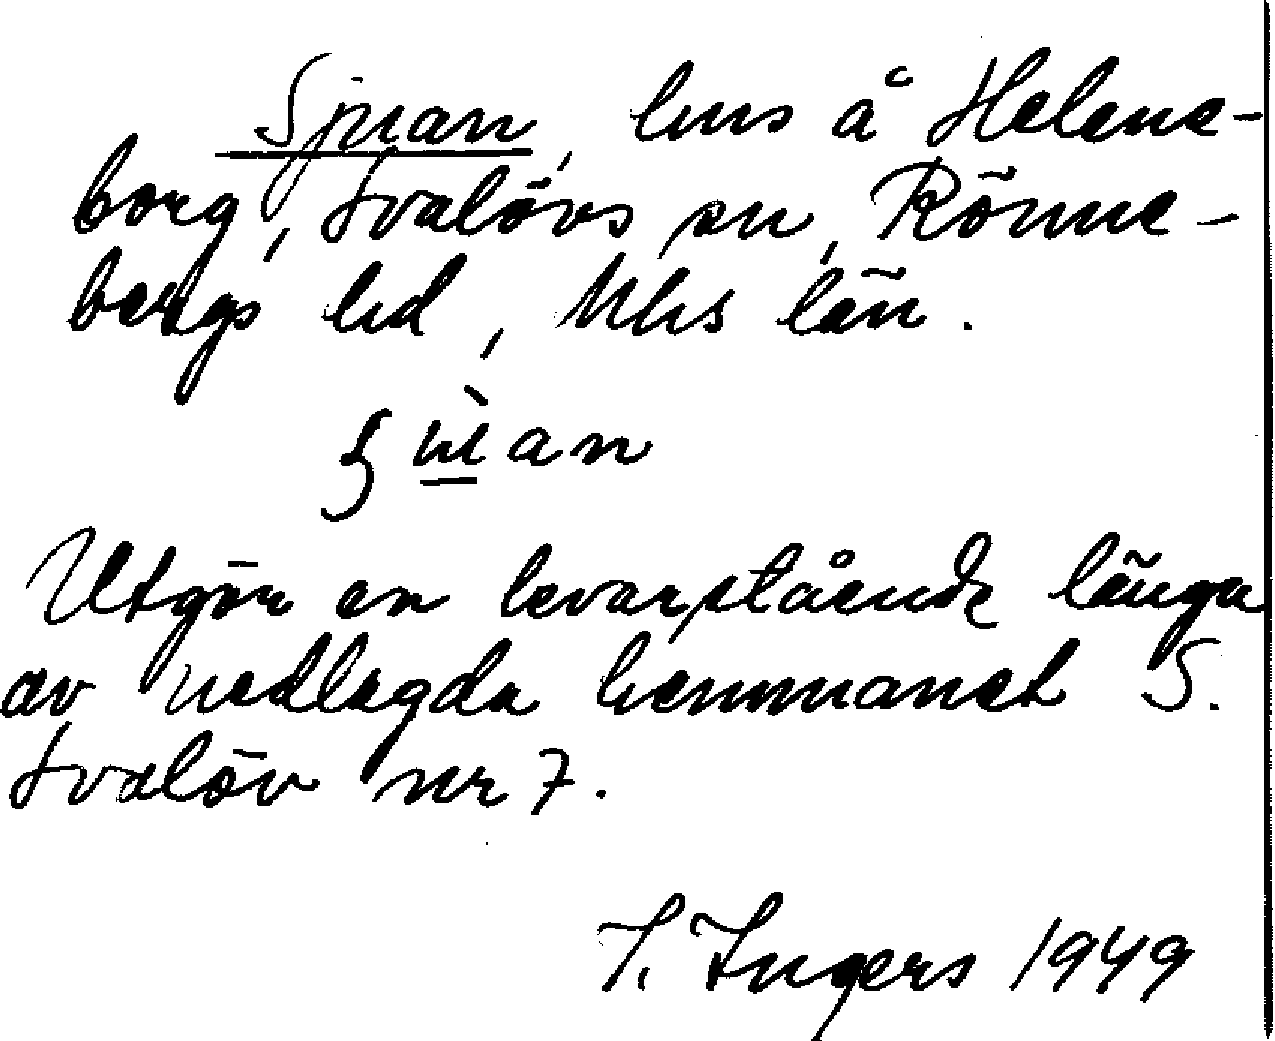 Sjuan, hus å Helene-
borg, Svalövs sn, Rönne-
bergs hd, Mhs län.
ʒ ù̱an
Utgör en kvarstående länga
av nedlagda hemmanet S.
Svalöv nr 7.
I. Ingers 1949